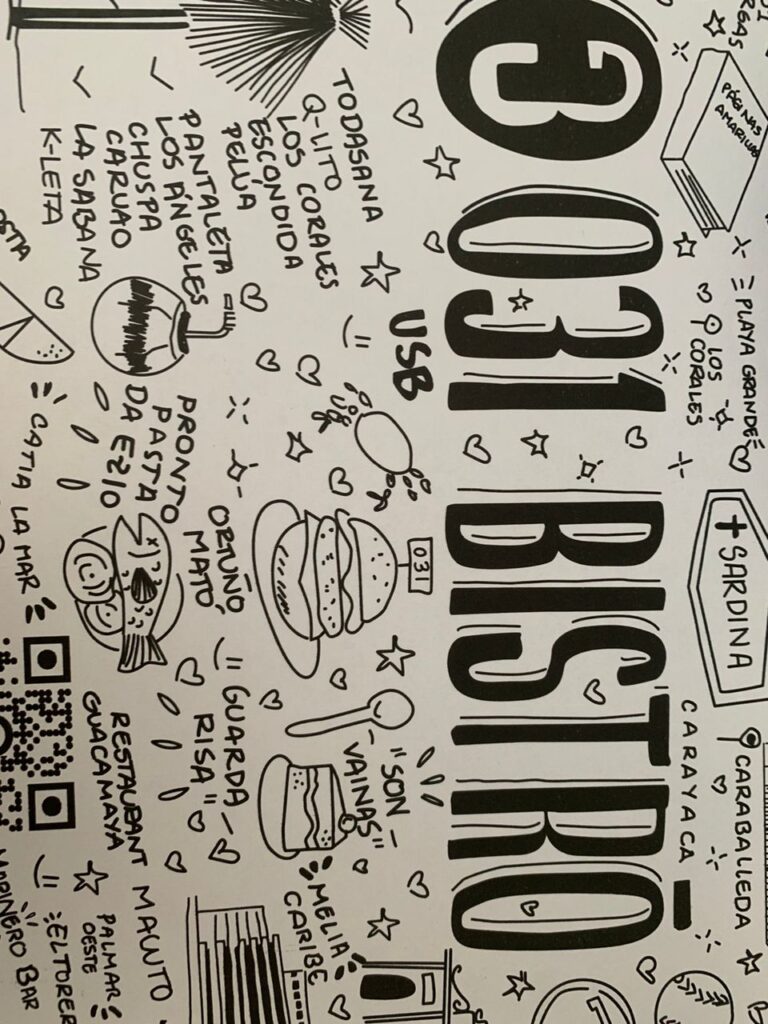 PÁGINAS
AMARILLAS
PLAYA GRANDE
LOS
CORALES
+SARDINA
CARABALLEDA
CARAYACA
031 BISTRÓ
USB
031
"SON
VAINAS"
MELIA
CARIBE
TODASANA
Q-LITO
LOS CORALES
ESCÓNDIDA
PELÚA
PANTALETA
LOS ÁNGELES
CHUSPA
CARUAO
LA SABANA
K-LETA
ORTUÑO
MATÓ
"GUARDA
RISA"
PRONTO
PASTA
DA EZIO
RESTAURANT MAUTO
GUACAMAYA
CATIA LA MAR
PALMAR
OESTE
BAR